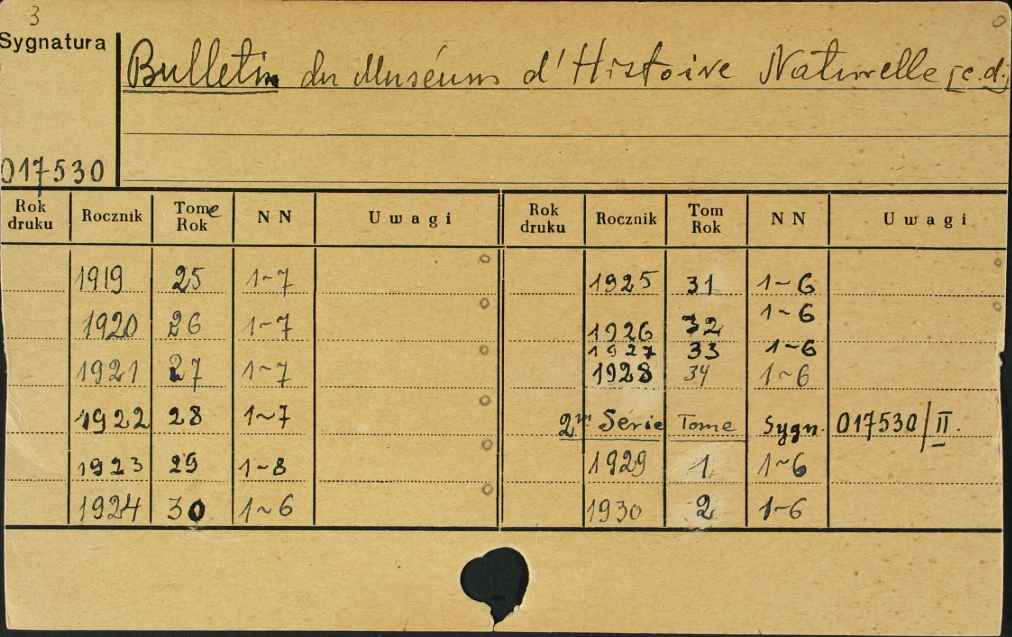 3
Sygnatura
Bulletin du Muséum d'Histoire Naturelle [c.d.]
017530
Rok druku Rocznik Tome Rok N N Uwagi Rok druku Rocznik Tom Rok N N Uwagi
1919 25 1-7 1925 31 1-6
1920 26 1-7 1926 32 1-6
1927 33 1-6
1921 27 1-7 1928 34 1-6
1922 28 1-7 2me Série Tome Sygn. 017530/II.
1923 29 1-8 1929 1 1-6
1924 30 1-6 1930 2 1-6